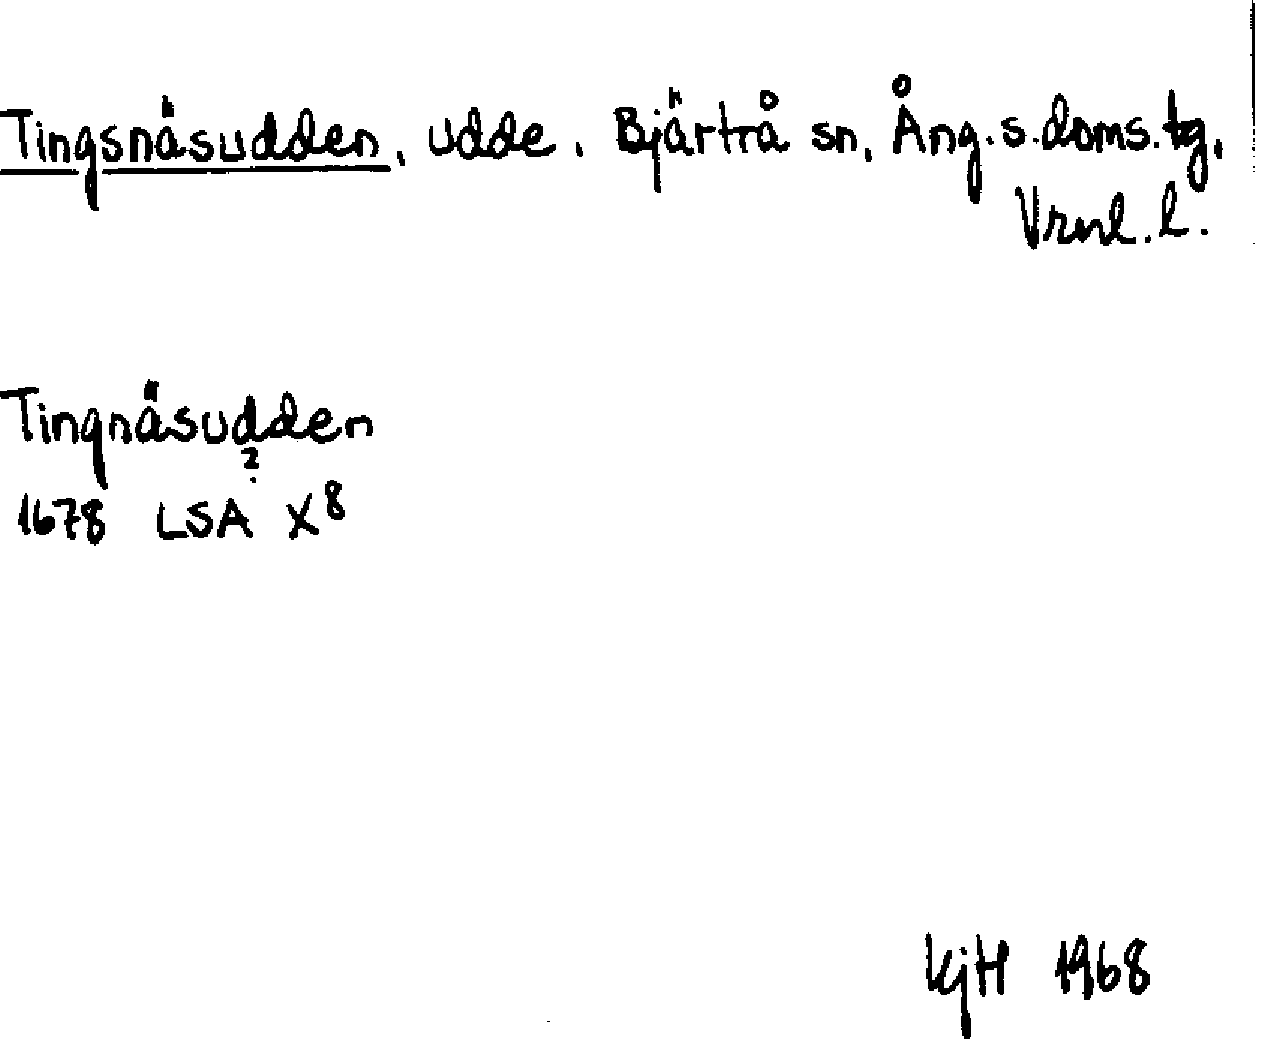 Tingsnäsudden, udde, Bjärtrå sn, Ång.s.doms.tg,
Vrnl. l.
Tingnäsudden
?
1678 LSA X8
KjH 1968